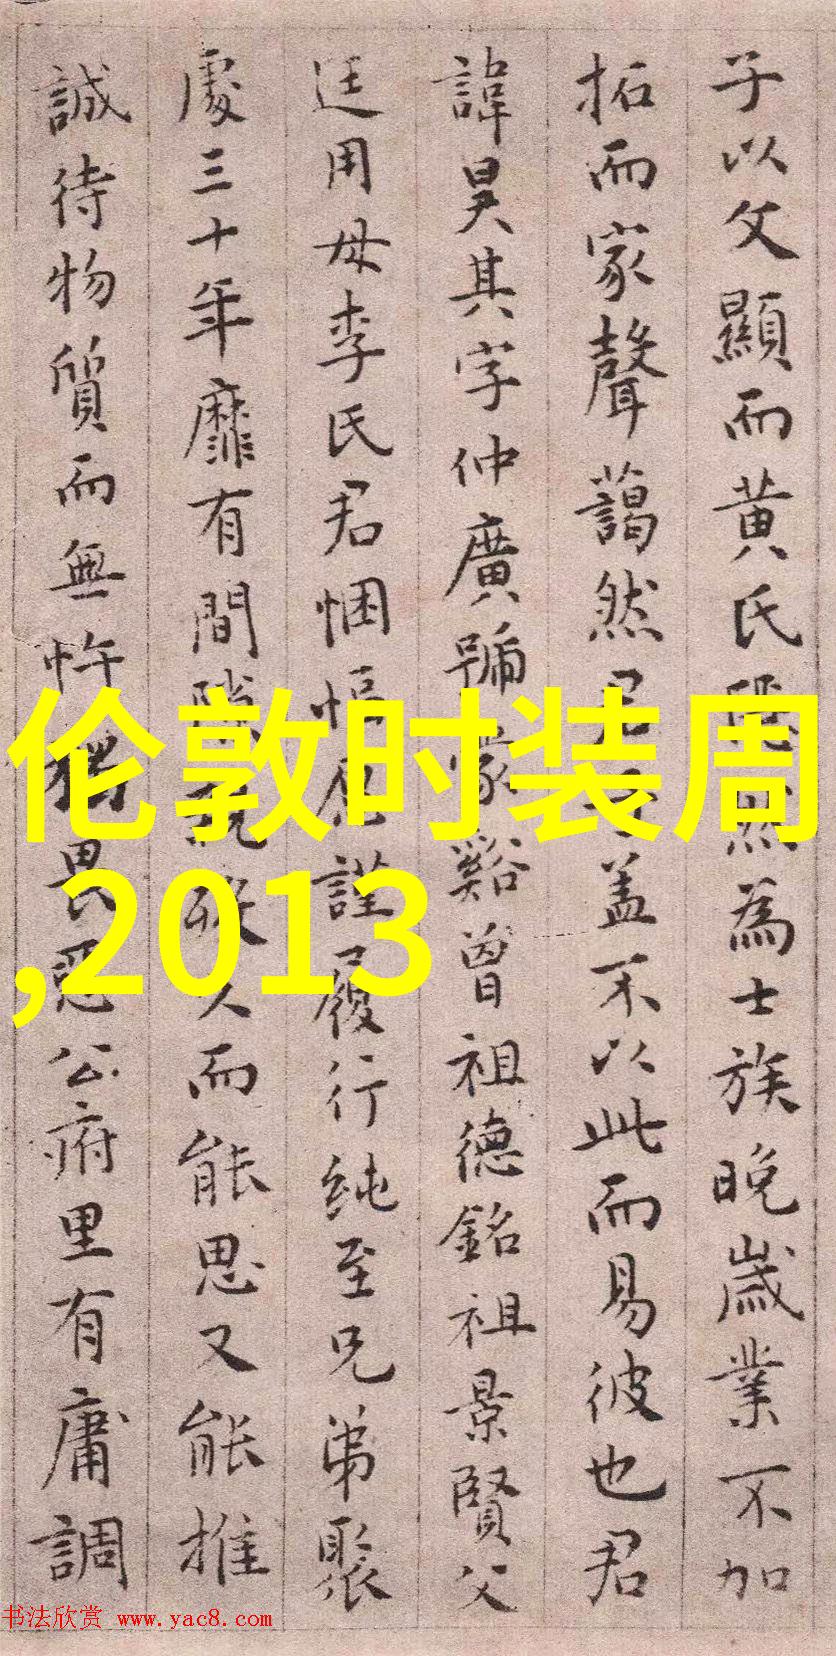 子以文顯而黄氏隱然為士族晚歲業不加
拓而家聲藹然君子蓋不以此而易彼也君
諱昊其字仲廣號蒙谿曾祖德銘祖景賢父
廷用母李氏君悃愊居謹履行纯至兄弟聚
處三十年靡有間隙既發久而能思又能推
誠待物質而無忤猶畏慝公府里有庸調
伦敦时装周
,2013
书法欣赏 www.yac8.com